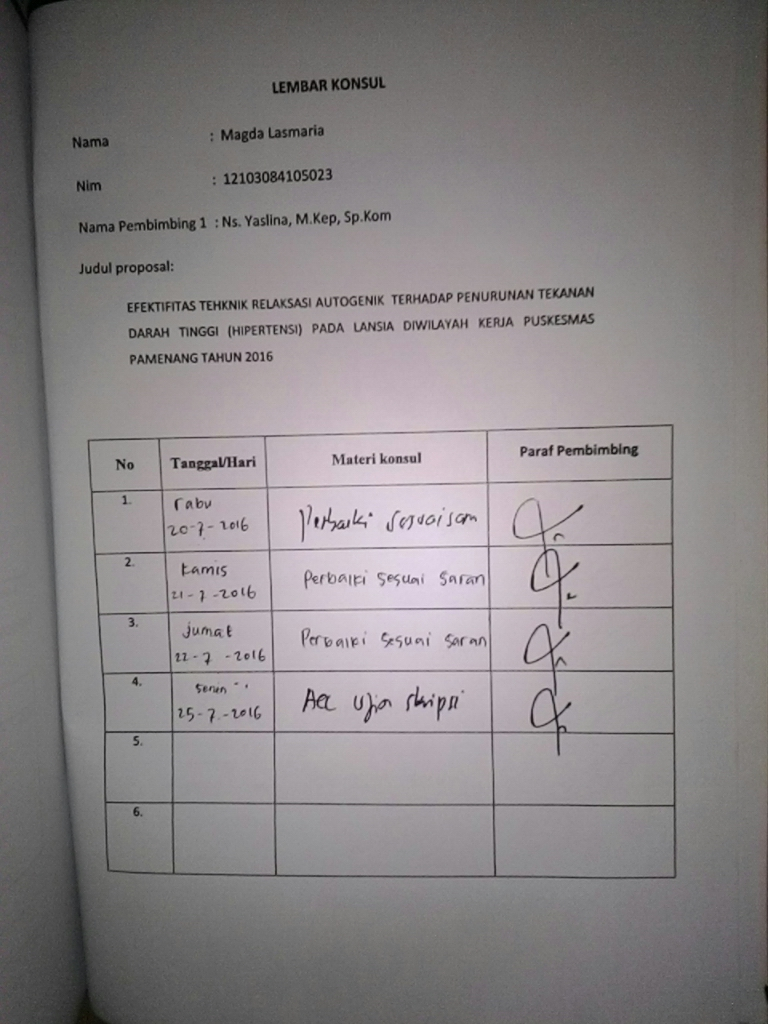 LEMBAR KONSUL
Nama : Magda Lasmaria
Nim : 12103084105023
Nama Pembimbing 1 : Ns. Yaslina, M.Kep, Sp.Kom
Judul proposal:
EFEKTIFITAS TEHKNIK RELAKSASI AUTOGENIK TERHADAP PENURUNAN TEKANAN
DARAH TINGGI (HIPERTENSI) PADA LANSIA DIWILAYAH KERJA PUSKESMAS
PAMENANG TAHUN 2016
No Tanggal/Hari Materi konsul Paraf Pembimbing
1. rabu
20-7-2016 Perbaiki sesuai
2. kamis
21-7-2016 Perbaiki sesuai saran
3. jumat
22-7-2016 Perbaiki sesuai saran
4. senin
25-7-2016 Acc ujian skripsi
5.
6.